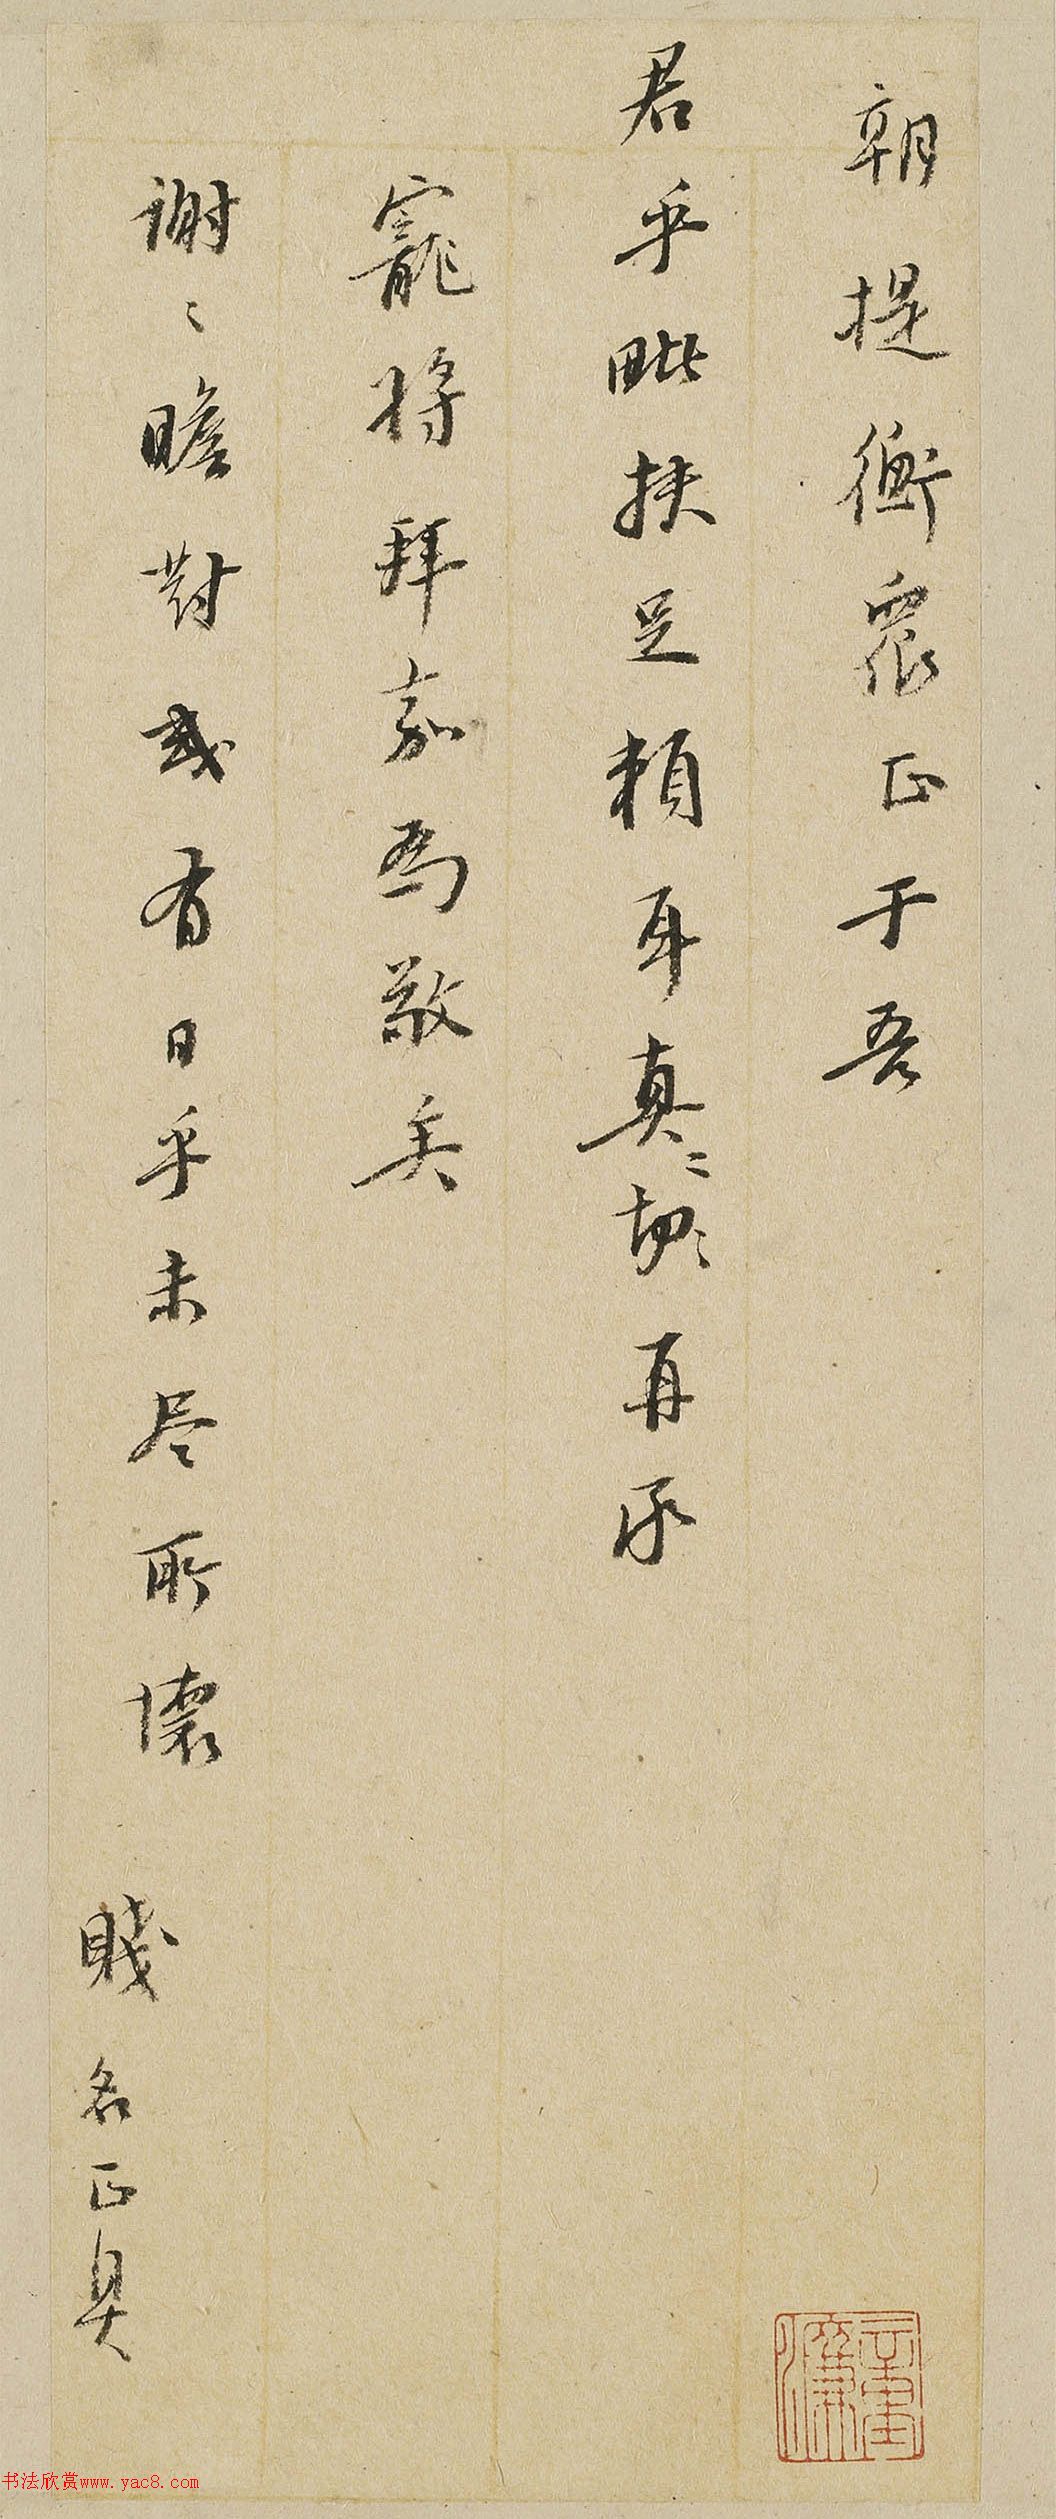 朝提衡眾正于吾
君乎毗扶足賴耳真〻切〻再承
寵将拜嘉為敬矣
謝〻瞻對或有日乎未尽所懷
賤名正具
书法欣赏www.yac8.com